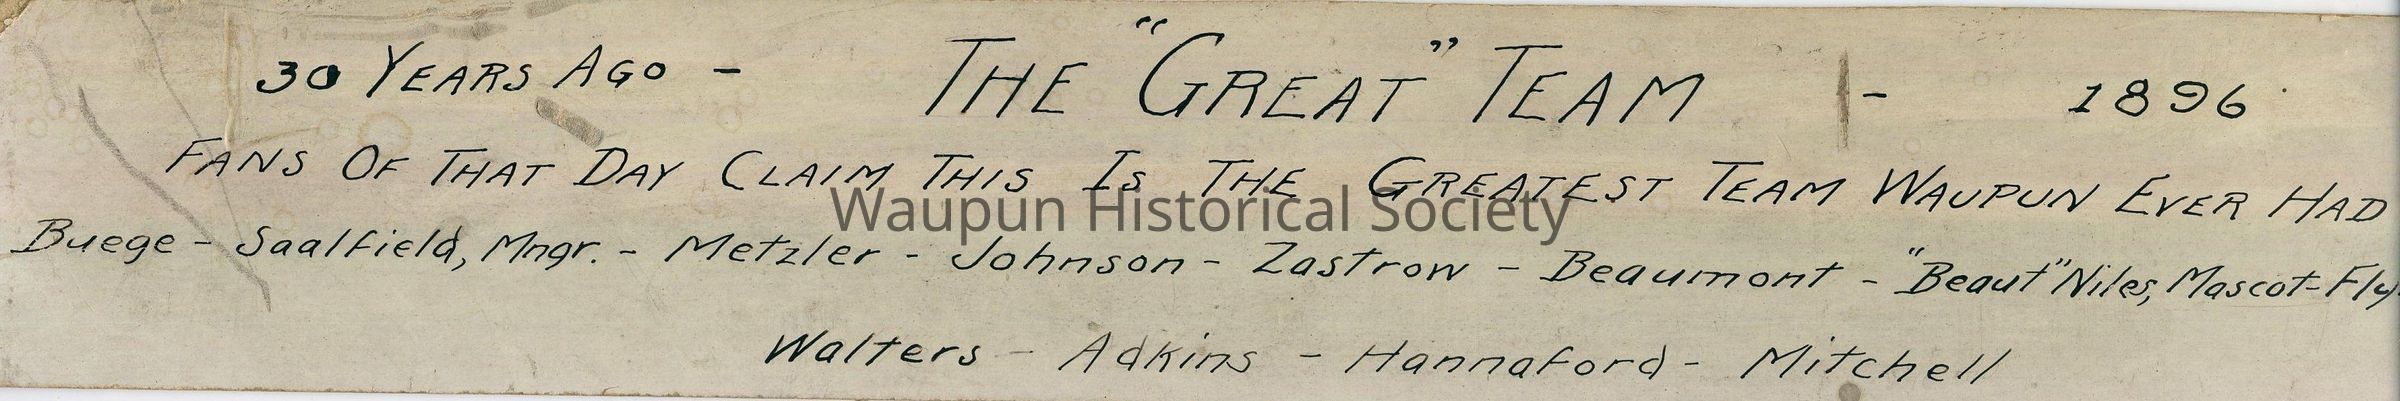 30 YEARS AGO - THE "GREAT" TEAM - 1896
FANS OF THAT DAY CLAIM THIS IS THE GREATEST TEAM WAUPUN EVER HAD
Waupun Historical Society
Buege - Saalfield, Mngr. - Metzler - Johnson - Zastrow - Beaumont - "Beaut" Niles, Mascot - Fly
Walters - Adkins - Hannaford - Mitchell